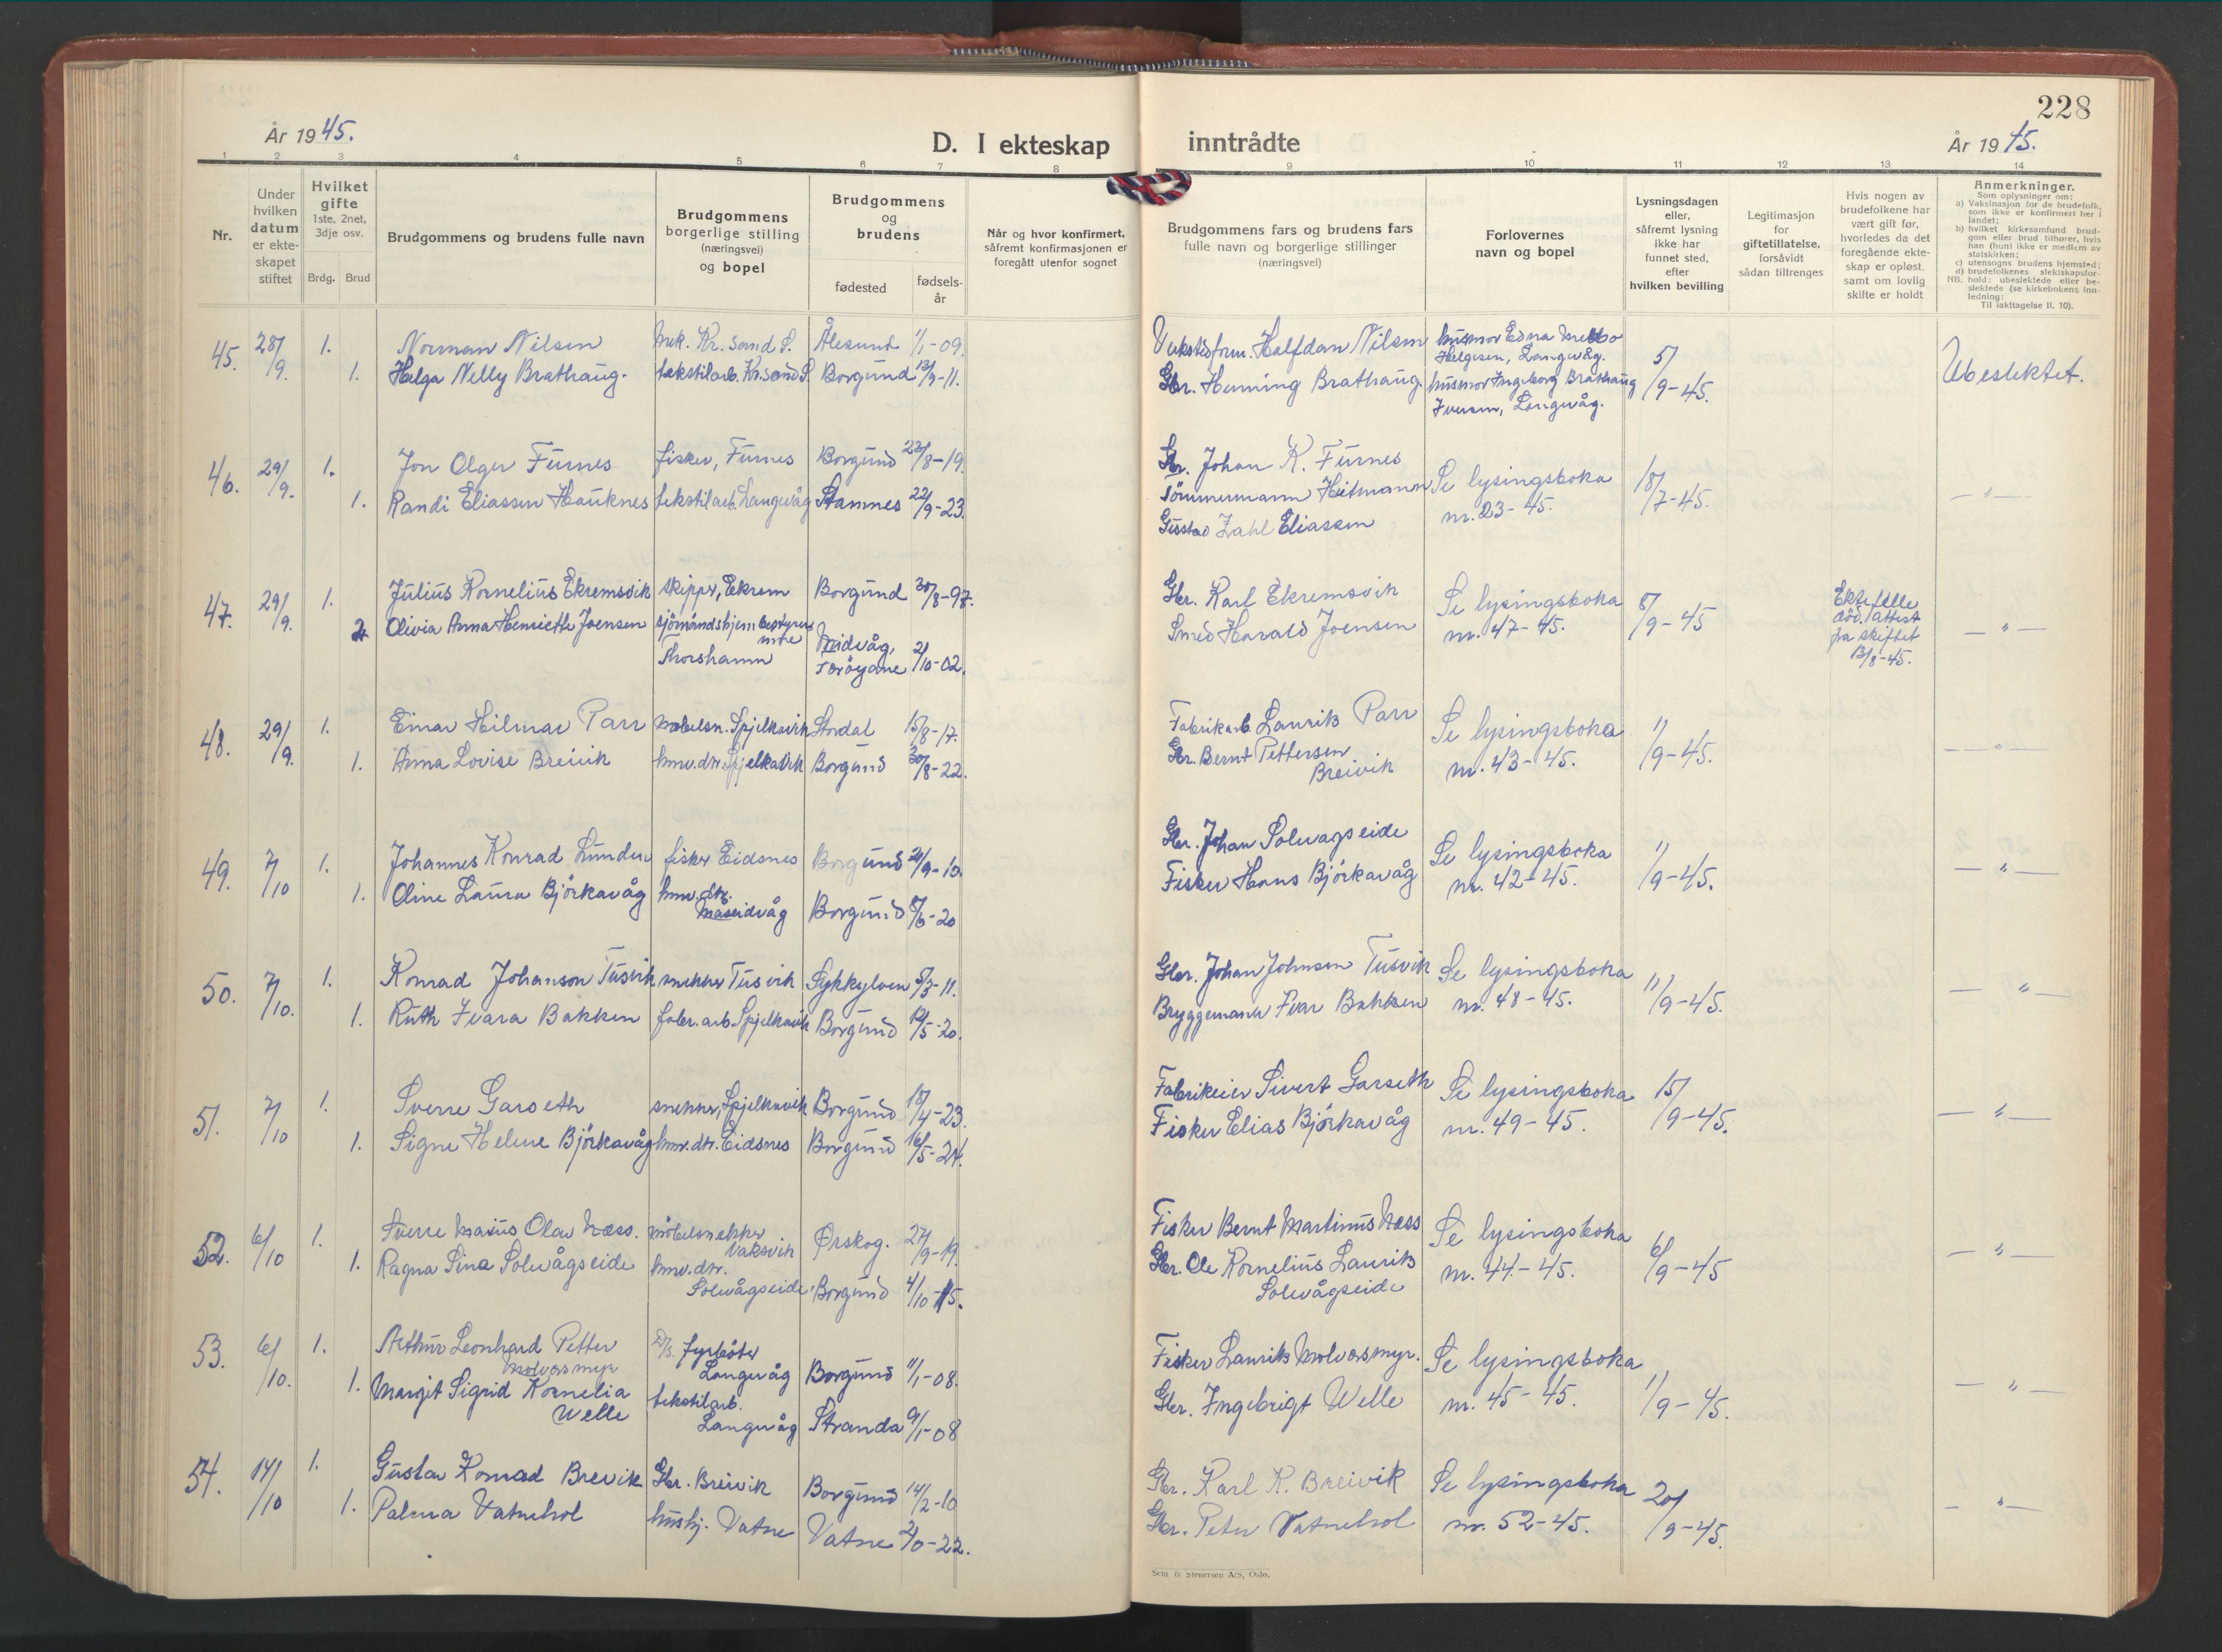 228
År 1945.
D. I ekteskap inntrådte
År 1945.
1 2 3 4 5 6 7 8 9 10 11 12 13 14
Nr.
Under hvilken datum er ekteskapet stiftet
Hvilket gifte
1ste, 2net, 3dje osv.
Brdg. Brud
Brudgommens og brudens fulle navn
Brudgommens borgerlige stilling (næringsvei) og bopel
Brudgommens og brudens
fødested
fødselsår
Når og hvor konfirmert, såfremt konfirmasjonen er foregått utenfor sognet
Brudgommens fars og brudens fars fulle navn og borgerlige stillinger (næringsvei)
Forlovernes navn og bopel
Lysningsdagen eller, såfremt lysning ikke har funnet sted, efter hvilken bevilling
Legitimasjon for giftetillatelse, forsåvidt sådan tiltrenges
Hvis nogen av brudefolkene har vært gift før, hvorledes da det foregående ekteskap er opløst, samt om lovlig skifte er holdt
Anmerkninger.
Som oplysninger om:
a) Vaksinasjon for de brudefolk, som ikke er konfirmert her i landet;
b) hvilket kirkesamfund brudgom eller brud tilhører, hvis han (hun) ikke er medlem av statskirken;
c) utensogns brudens hjemsted;
d) brudefolkenes slektskapsforhold: ubeslektede eller beslektede (se kirkebokens innledning:
NB.
Til iakttagelse II. 10).
45. 28/9. 1. Norman Nilsen mek. Kr.sand S. Ålesund 1/1-09. Verkstedform. Halfdan Nilsen husmor Edna Helgesen, Langevåg. 5/9-45. Ubeslektet.
1. Helga Nelly Brathaug. tekstilarb. Kr.sand S. Borgund 13/9-11. Gbr. Henning Brathaug. husmor Ingeborg Brathaug Iversen, Langevåg.
46. 29/9. 1. Jon Olger Furnes fisker, Furnes Borgund 23/8-19. Gbr. Johan K. Furnes Se lysingsboka nr. 23-45. 18/7-45. — " —
1. Randi Eliassen Hauknes tekstilarb. Langevåg Stamnes 22/9-23. Tömmermann Hitmann
Gustad Zahl Eliassen
47. 29/9. 1. Julius Kornelius Ekremsvik skipper, Ekrem Borgund 30/8-97. Gbr. Karl Ekremsvik Se lysingsboka nr. 47-45. 8/9-45 Ektefelle död. Attest fra skiftet 13/8-45. — " —
2. Olivia Anna Henriette Joensen sjömandshjem bestyrerinne Thorshamn Midvåg, Færöyane 2/10-02. Smed Harald Joensen
48. 29/9. 1. Einar Hilmar Parr møbelsn. Spjelkavik Stordal 15/8-17. Fabrikarb. Laurits Parr Se lysingsboka nr. 43-45. 1/9-45. — " —
1. Anna Lovise Breivik hmv.dtr. Spjelkavik Borgund 30/8-22. Gbr. Bernt Pettersen Breivik
49. 7/10 1. Johannes Konrad Lunden fisker Eidsnes Borgund 21/9-10. Gbr. Johan Solevagseide Se lysingsboka nr. 42-45. 1/9-45. — " —
1. Oline Laura Björkavåg hmv.dtr. Maseidvåg Borgund 8/6-20 Fisker Hans Björkavåg
50. 7/10. 1. Konrad Johanson Tusvik snekker Tusvik Sykkylven 5/3-11. Gbr. Johan Johnsen Tusvik Se lysingsboka nr. 48-45. 11/9-45. — " —
1. Ruth Ivara Bakken fabr.arb. Spjelkavik Borgund 12/5-20. Bryggemann Ivar Bakken
51. 7/10 1. Sverre Garseth snekker, Spjelkavik Borgund 15/4-23. Fabrikeier Sivert Garseth Se lysingsboka nr. 49-45. 15/9-45. — " —
1. Signe Helene Björkavåg hmv.dtr. Eidsnes Borgund 16/5-24. Fisker Elias Björkavåg
52. 6/10 1. Sverre Marius Olav Næss. möbelsnekker Vaksvik Ørskog. 27/9-19. Fisker Bernt Martinus Næss Se lysingsboka nr. 44-45. 6/9-45 — " —
1. Ragna Sina Solevågseide hmv.dtr. Solevågseide Borgund 4/10-15. Gbr. Ole Kornelius Laurits Solevågseide
53. 6/10. 1. Arthur Leonhard Petter Molværsmyr D/S. fyrböter Langevåg Borgund 11/1-08. Fisker Laurits Molværsmyr. Se lysingsboka nr. 45-45. 1/9-45. — " —
1. Margit Sigrid Kornelia Welle tekstilarb. Langevåg Stranda 9/1-08 Gbr. Ingebrigt Welle
54. 14/10 1. Gustav Konrad Brevik Gbr. Breivik Borgund 14/2-10 Gbr. Karl K. Breivik Se lysingsboka nr. 52-45. 20/9-45. — " —
1. Palma Vatnehol hushj. Vatne Vatne 2/10-22. Gbr. Peter Vatnehol
Sem & Stenersen A/S, Oslo.